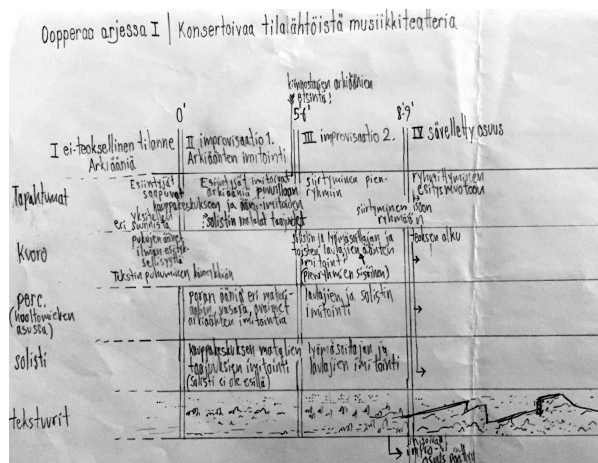 Oopperaa arjessa I | Konsertoivaa tilalähtöistä musiikkiteatteria
kiinnostavien arkiäänien
etsintä!
0' 5-6' 8-9'
I ei-teoksellinen tilanne
Arkiääniä
II improvisaatio 1.
Arkiäänten imitointi
III improvisaatio 2.
IV sävelletty osuus
Tapahtumat
Esiintyjät
saapuvat
kauppakeskukseen
yksitellen
eri suunnista
Esiintyjät imitoivat
arkiääniä
ja ääni-imitoiden
solistin matalat taajuudet
siirtyminen pien-
ryhmiin
siirtyminen ison
ryhmään
ryhmittyminen
esitysmuotoon
Kuoro
puhujen äänet
ilman esityk-
sellisyyttä
Tekstin puhuminen
solistin ja lyömäsoittajan ja
toisten laulajien äänten
imitointi
(pienryhmien sisäinen)
teoksen alku
perc.
(huoltomiehen
asussa)
poran ääniä eri materi-
vasara, avaimet
arkiäänten imitointia
laulajien ja solistin
imitointi
solisti
kauppakeskuksen matalien
taajuuksien imitointi
(solisti ei ole esillä)
lyömäsoittajan ja
laulajien imitointi
tekstuurit